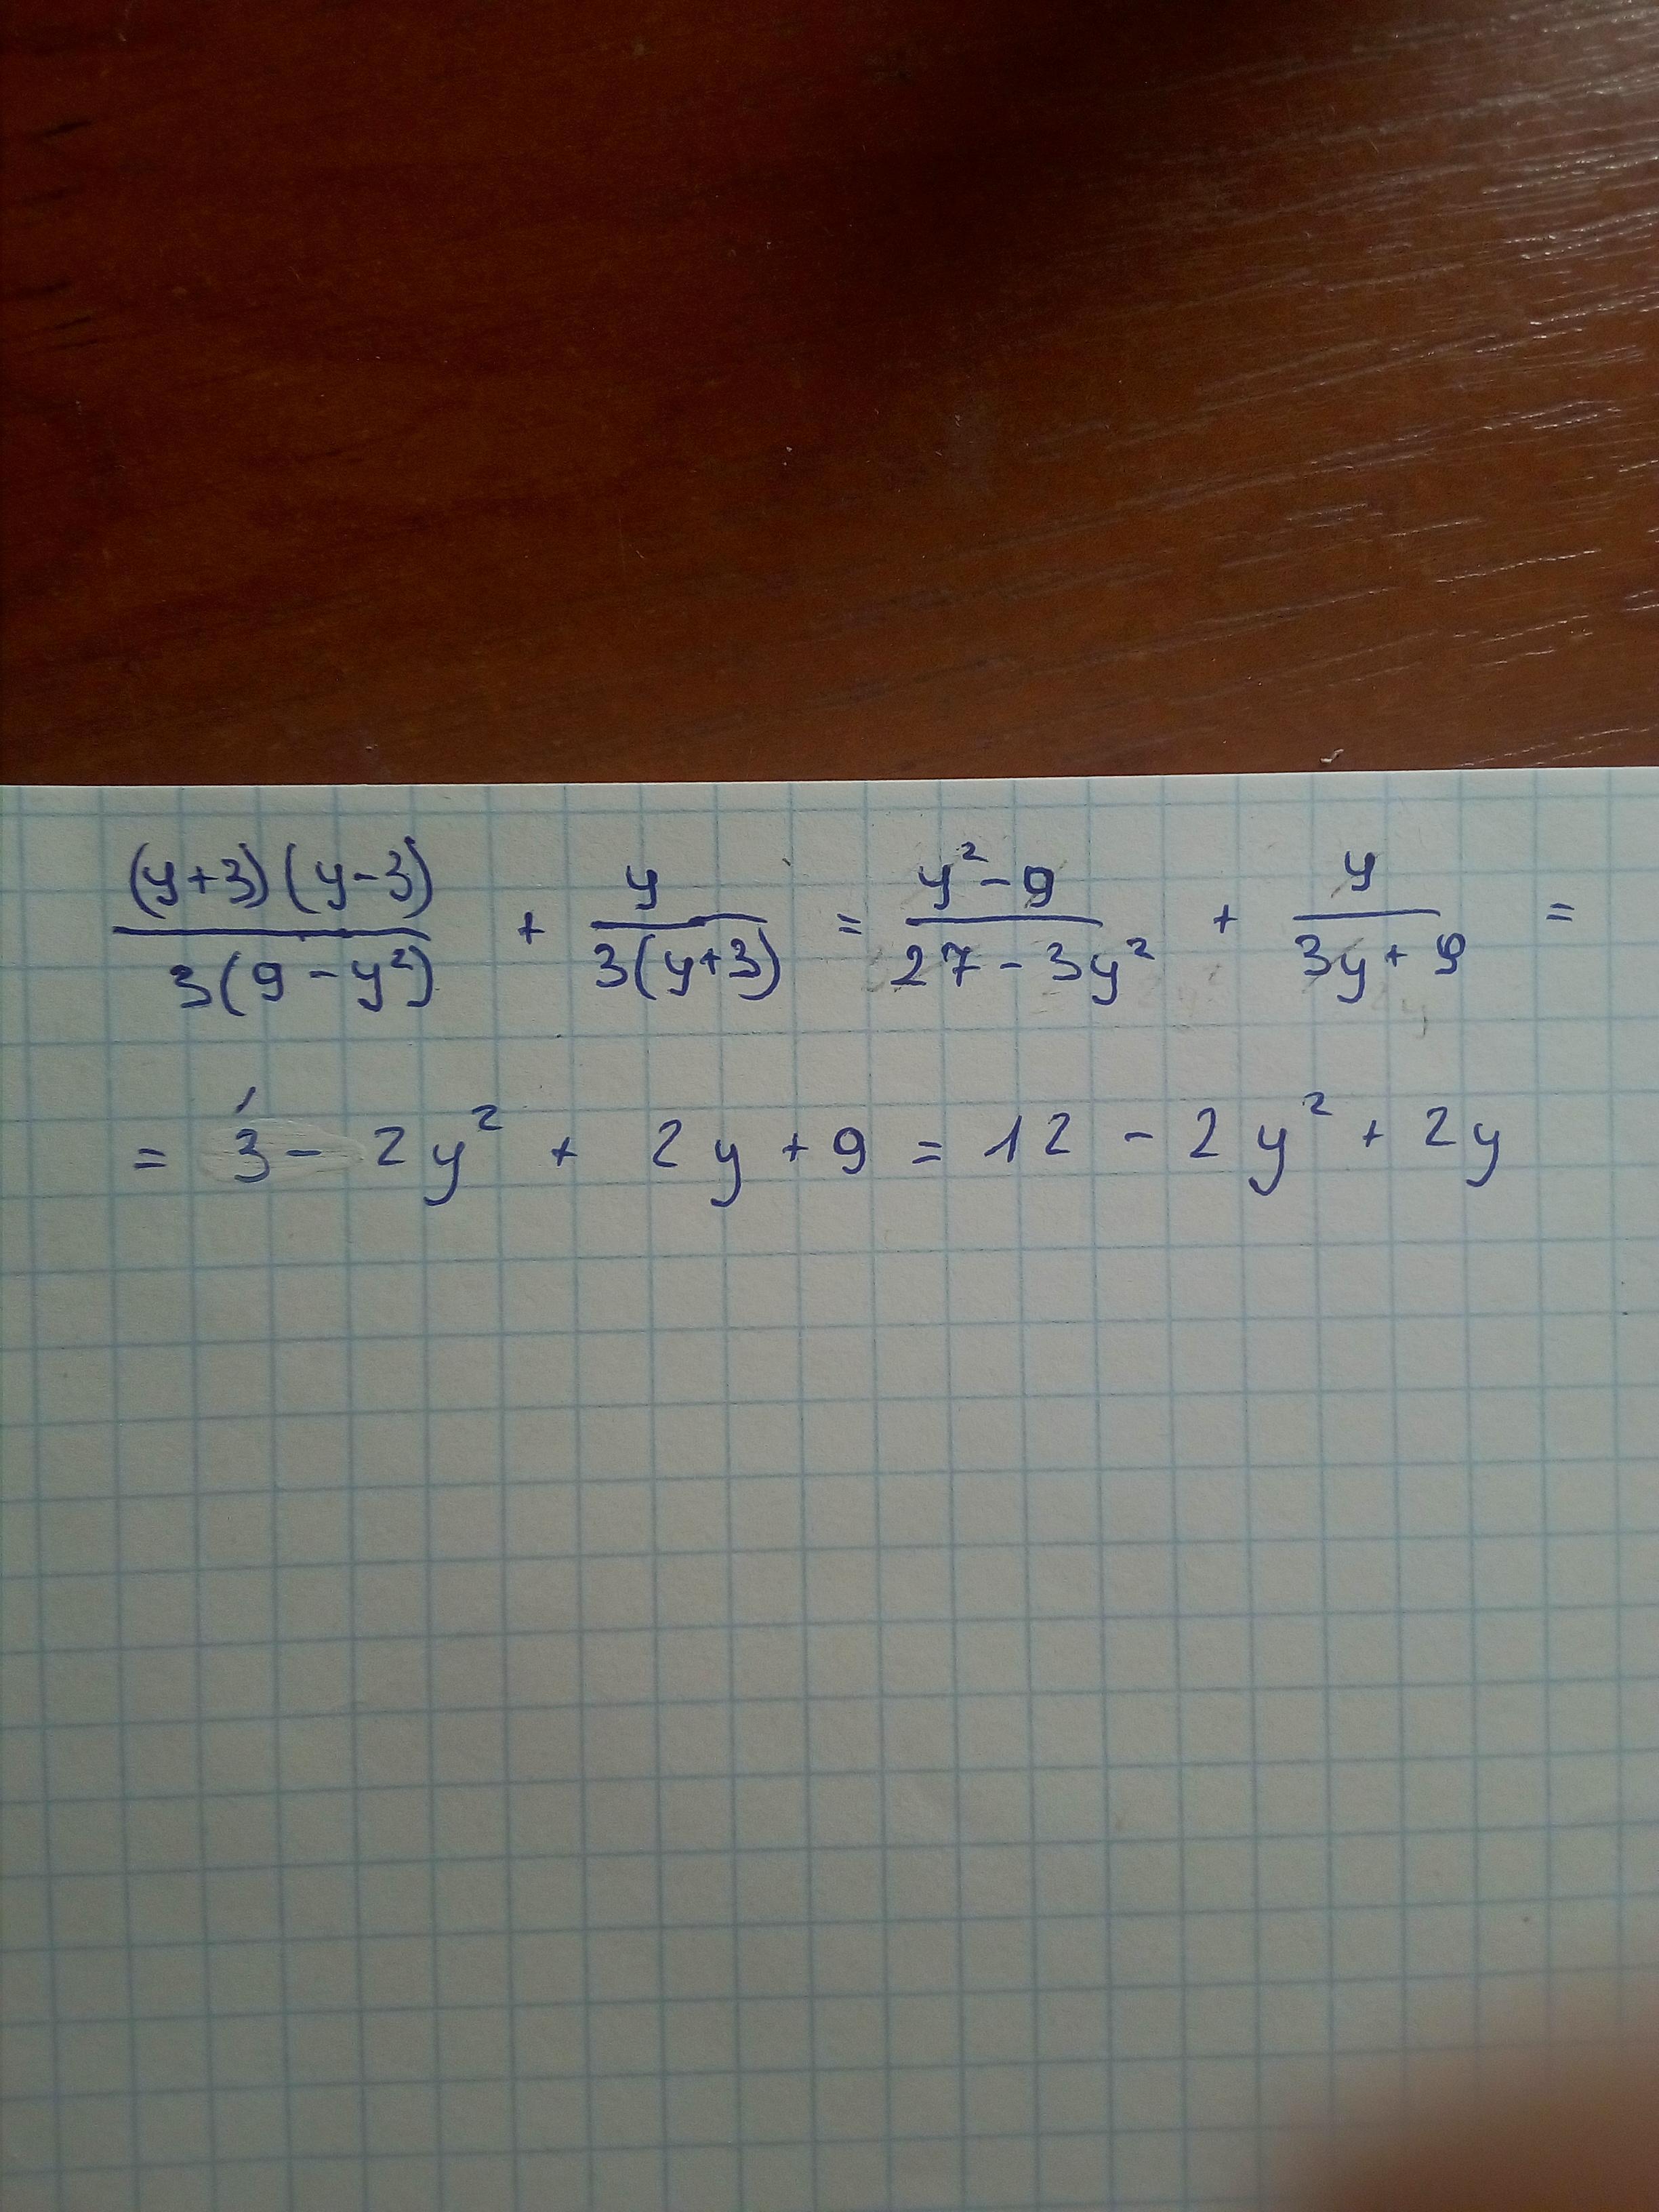 (y+3)(y-3)/3(9-y²) + y/3(y+3) = y²-9/27-3y² + y/3y+9 =
= 3 - 2y² + 2y + 9 = 12 - 2y² + 2y